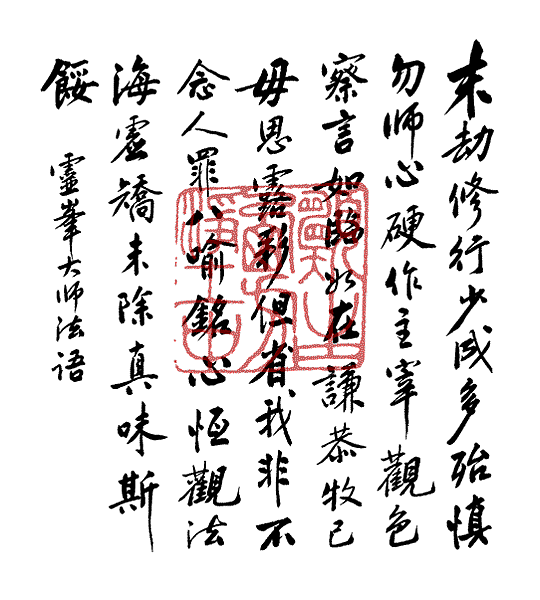 末劫修行少成多殆慎
勿师心硬作主宰觀色
察言如臨如在謙恭牧己
毋思露彩但省我非不
念人罪八喻銘心恆觀法
海虚矯未除真味斯
餒
靈峯大师法语